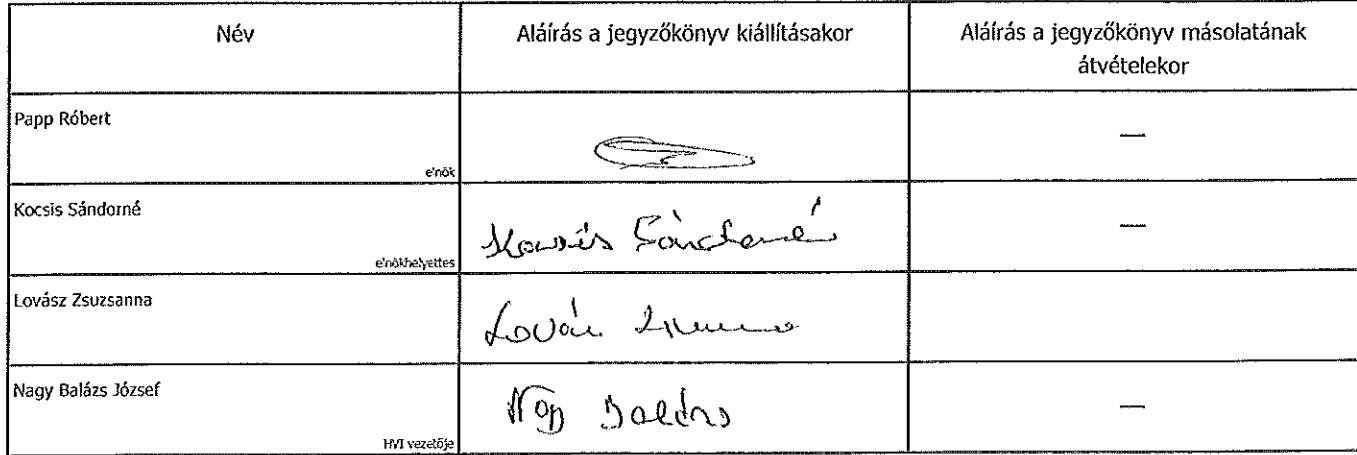 Név
Aláírás a jegyzőkönyv kiállításakor
Aláírás a jegyzőkönyv másolatának
átvételekor
Papp Róbert
elnök
—
Kocsis Sándorné
elnökhelyettes
Kocsis Sándorné
—
Lovász Zsuzsanna
Lovász Zsuzsanna
Nagy Balázs József
HVI vezetője
Nagy Balázs
—